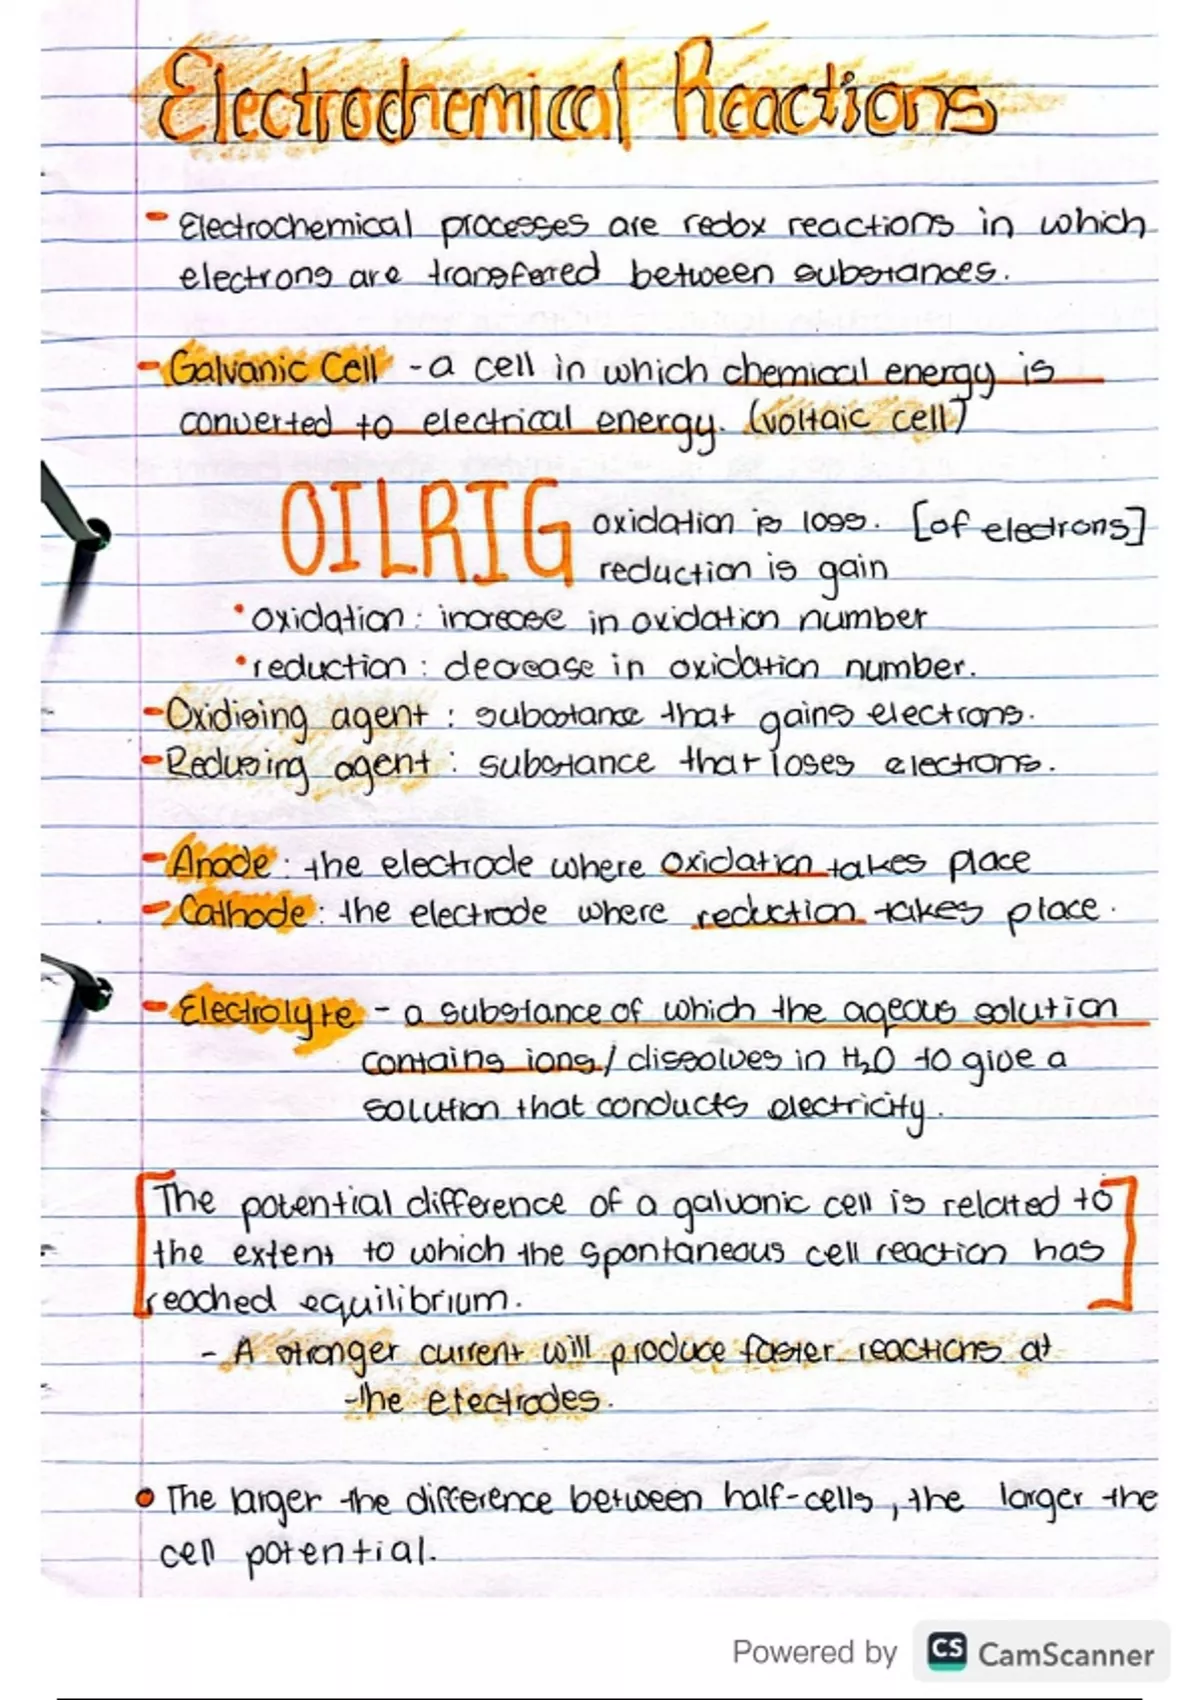 Electrochemical Reactions
- Electrochemical processes are redox reactions in which
electrons are transferred between substances.
- Galvanic Cell - a cell in which chemical energy is
converted to electrical energy. (voltaic cell)
OILRIG oxidation is loss. [of electrons]
reduction is gain
• oxidation : increase in oxidation number
• reduction : decrease in oxidation number.
- Oxidising agent : substance that gains electrons.
- Reducing agent : substance that loses electrons.
- Anode : the electrode where oxidation takes place
- Cathode : the electrode where reduction takes place.
- Electrolyte - a substance of which the aqeous solution
contains ions / dissolves in H₂O to give a
solution that conducts electricity.
[The potential difference of a galvanic cell is related to
the extent to which the spontaneous cell reaction has
reached equilibrium.]
- A stronger current will produce faster reactions at
the electrodes.
• The larger the difference between half-cells, the larger the
cell potential.
Powered by CS CamScanner